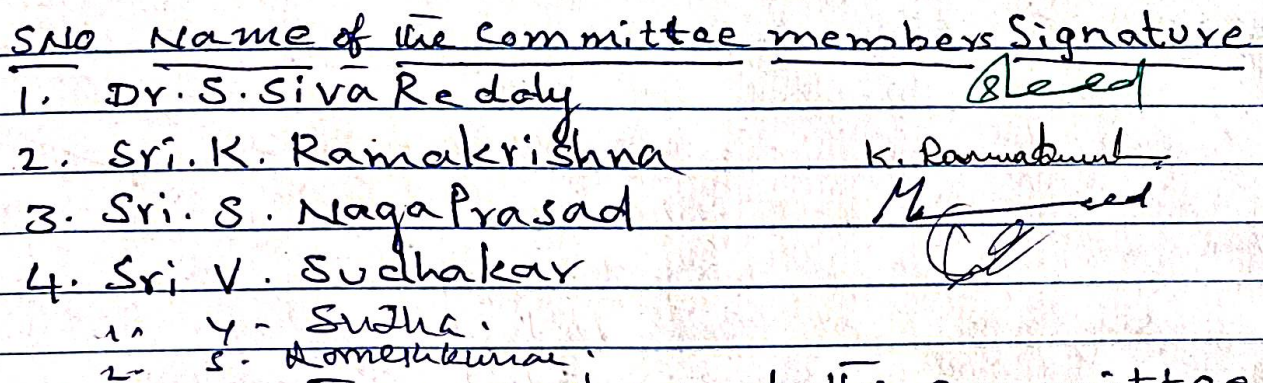 SNO Name of the Committee members Signature
1. Dr. S. Siva Reddy
2. Sri. K. Ramakrishna K.
3. Sri. S. Naga Prasad
4. Sri V. Sudhakar
1. Y. Sudha.
2. S.